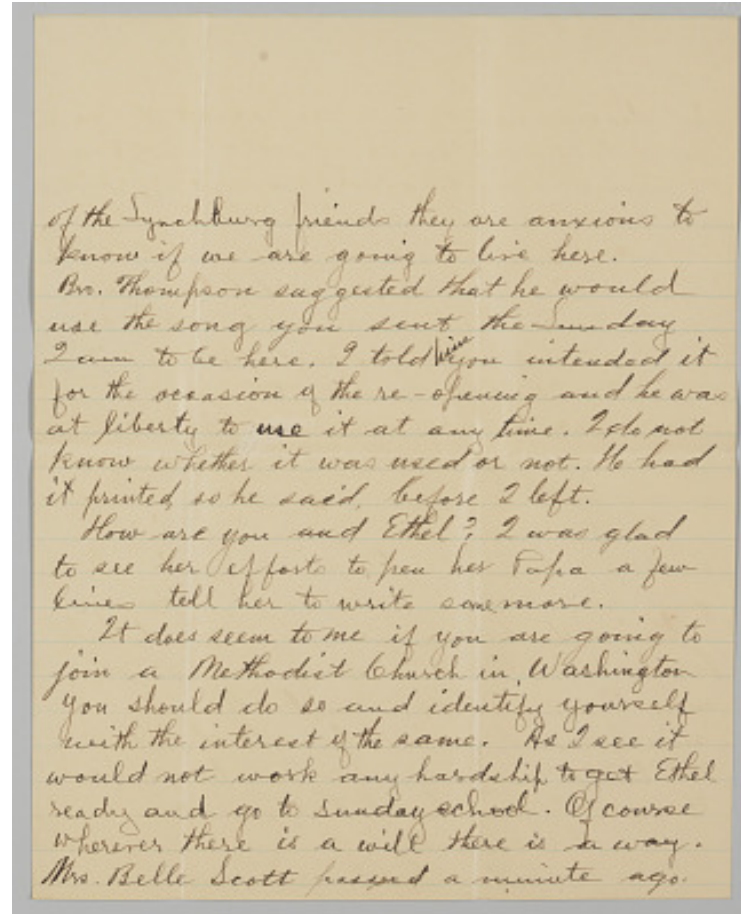 of the Lynchburg friends they are anxious to
know if we are going to live here.
Bro. Thompson suggested that he would
use the song you sent the Sunday
I am to be here. I told him you intended it
for the occasion of the re-opening and he was
at liberty to use it at any time. I do not
know whether it was used or not. He had
it printed, so he said, before I left.
How are you and Ethel? I was glad
to see her efforts to pen her Papa a few
lines tell her to write some more.
It does seem to me if you are going to
join a Methodist Church in Washington
you should do so and identify yourself
with the interest of the same. As I see it
would not work any hardship to get Ethel
ready and go to Sunday school. Of course
wherever there is a will there is a way.
Mrs. Belle Scott passed a minute ago.